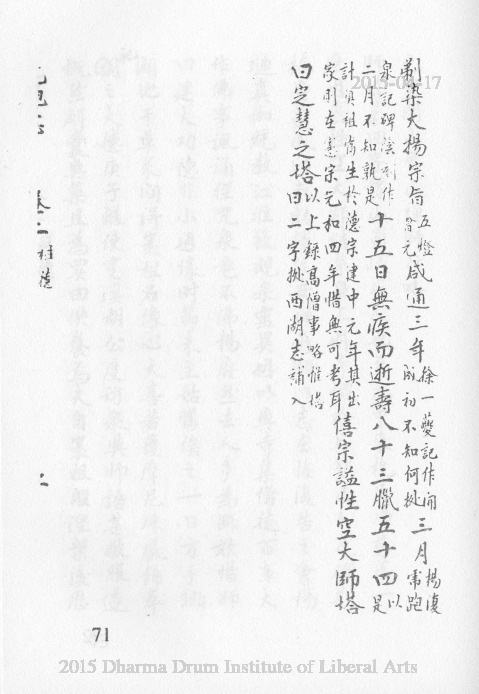 剃染大揚宗旨五燈會元咸通三年徐一夔記作開成初不知何據三月楊復
泉記碑虎跑作二月不知孰是十五日無疾而逝壽八十三臘五十四以是
計頁祖當生於德宗建中元年其出家則在憲宗元和四年惜無可考耳僖宗諡性空大師塔
曰定慧之塔以上錄高僧事略惟塔曰二字據西湖志補入
桂德
71
2015-08-17
2015 Dharma Drum Institute of Liberal Arts